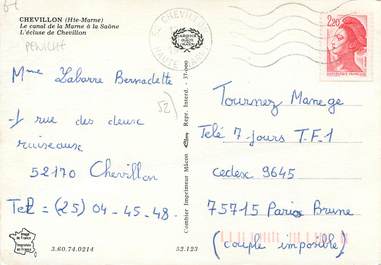 CHEVILLON (Hte-Marne)
Le canal de la Marne à la Saône
L'écluse de Chevillon
PENICHE
52 CHEVILLON
HAUTE MARNE
2,20
Mme Labarre Bernadette
1 rue des deux
ruisseaux
52170 Chevillon
Tel = (25) 04-45-48
52)
Combier Imprimeur Mâcon
Repr. Interd. - 37.000
Tournez Manege
Telé 7 jours T.F.1
cedex 9645
75715 Paris Brune
(couple imposible)
3.60.74.0214
52.123